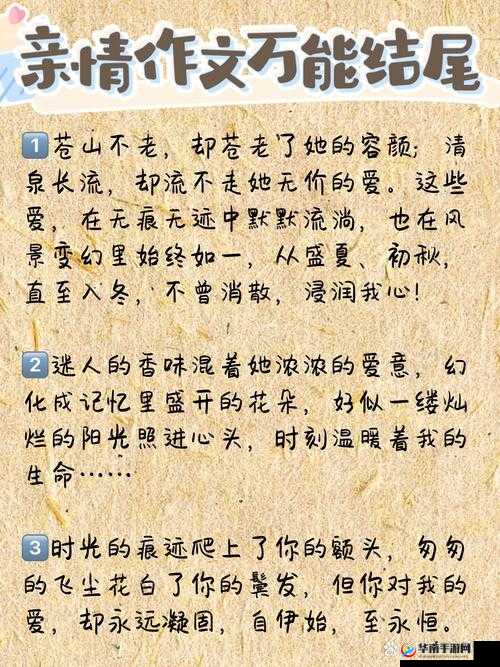 亲情作文万能结尾
1 苍山不老，却苍老了她的容颜；清
泉长流，却流不走她无价的爱。这些
爱，在无痕无迹中默默流淌，也在风
景变幻里始终如一，从盛夏、初秋，
直至入冬，不曾消散，浸润我心！
2 迷人的香味混着她浓浓的爱意，幻
化成记忆里盛开的花朵，好似一缕灿
烂的阳光照进心头，时刻温暖着我的
生命……
3 时光的痕迹爬上了你的额头，匆匆
的飞尘花白了你的鬓发，但你对我的
爱，却永远凝固，自伊始，至永恒。
华南手游网